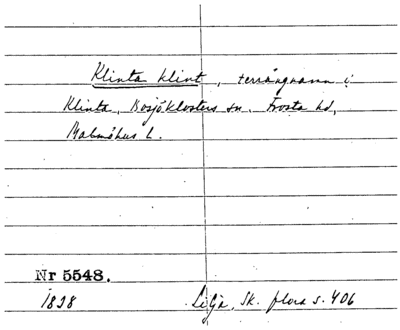 Klinta klint, terrängnamn i
Klinta, Bosjöklosters sn. Frosta hd,
Malmöhus l.
Nr 5548.
1838 Lilja, Sk. flora s. 406